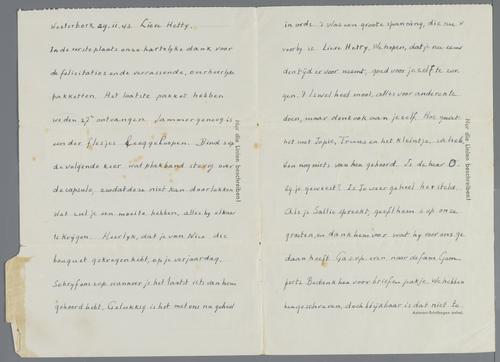 Westerbork 29.11.43 Lieve Hetty.
In de eerste plaats onze hartelijke dank voor
de felicitaties en de verrassende, overheerlijke
pakketten. Het laatste pakket hebben
we den 27e ontvangen. Jammer genoeg is
een der flesjes leeggelopen. Bind s.v.p.
de volgende keer wat plakband stevig over
de capsule, zoodat deze niet kan doorlekken
Wat zul je een moeite hebben, alles bij elkaar
te krijgen. Heerlijk, dat je van Nico die
bouquet gekregen hebt, op je verjaardag.
Schrijf ons s.v.p. wanneer je het laatst iets van hem
gehoord hebt. Gelukkig is het met ons nu geheel
in orde. 't Was een groote spanning, die nu
voorbij is. Lieve Hetty, We hopen, dat je nu eens
den tijd er voor neemt, goed voor jezelf te zor
gen. 't Is wel heel mooi, alles voor anderen te
doen, maar denk ook aan jezelf. Hoe gaat
het met Jopie, Truus en het Kleintje, we heb
ben nog niets van hen gehoord. Is de heer O.
bij je geweest? Is Jo weer geheel hersteld.
Als je Sallie spreekt, geef hem s.v.p. onze
groeten, en dank hem voor wat hij voor ons ge
daan heeft. Ga s.v.p. even naar de fam. Gom
perts. Bedank hen voor brief en pakje. We hebben
hen geschreven, doch blijkbaar is dat niet te
Nur die Linien beschreiben!
Nur die Linien beschreiben!